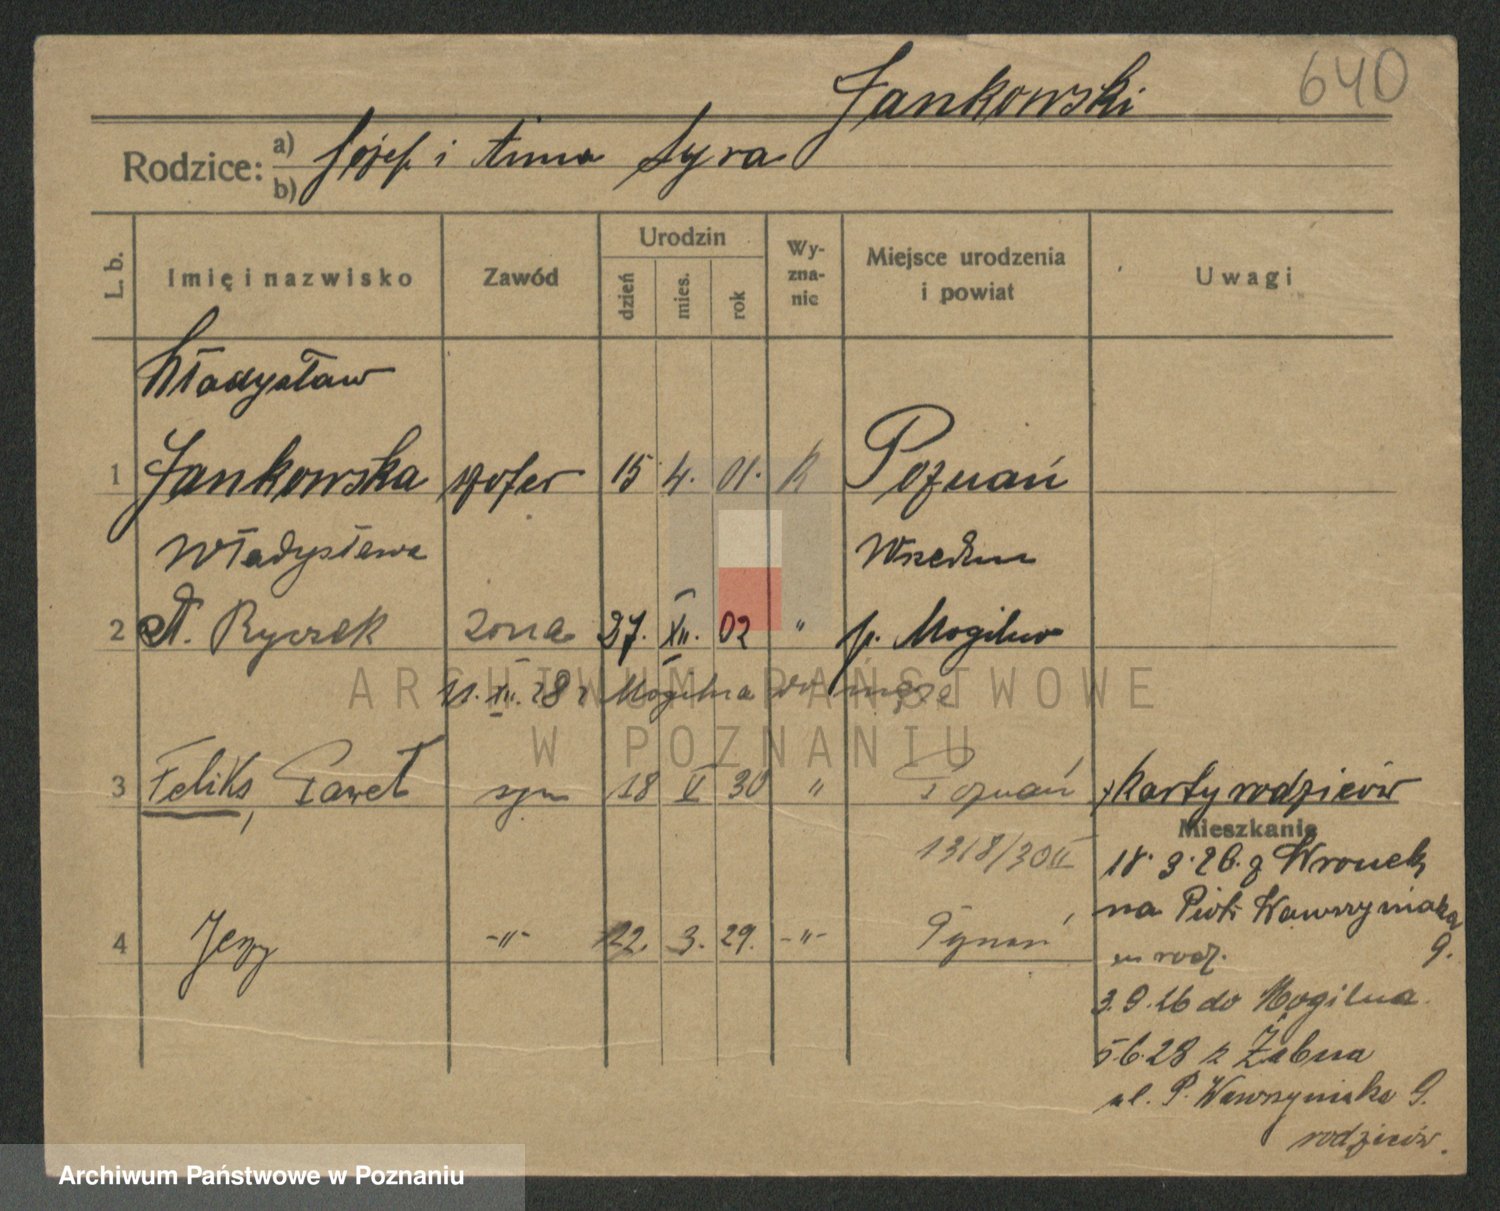 Jankowski 640
Rodzice: a) b) Józef i Anna Syra
L. b. Imię i nazwisko Zawód Urodzin dzień mies. rok Wy-zna-nie Miejsce urodzenia i powiat Uwagi
Władysław
1 Jankowska szofer 15 4. 01. R Poznań
Władysława
2 Ryczek żona 27. XII. 02 " p. Mogilno
11. XII. 28 z Mogilna do męża
3 Feliks, Paweł syn 18 V 30 " Poznań z karty rodziców
Mieszkania
1318/30 II 18.3.26. z Wronek
na Piotr Wawrzyniaka
4 Jerzy -"- 22. 3. 29. -"- 9.
rodz.
3.9.26 do Mogilna
5.6.28 z Żabna
ul. P. Wawrzyniaka 9.
rodziców.
ARCHIWUM PAŃSTWOWE
W POZNANIU
Archiwum Państwowe w Poznaniu